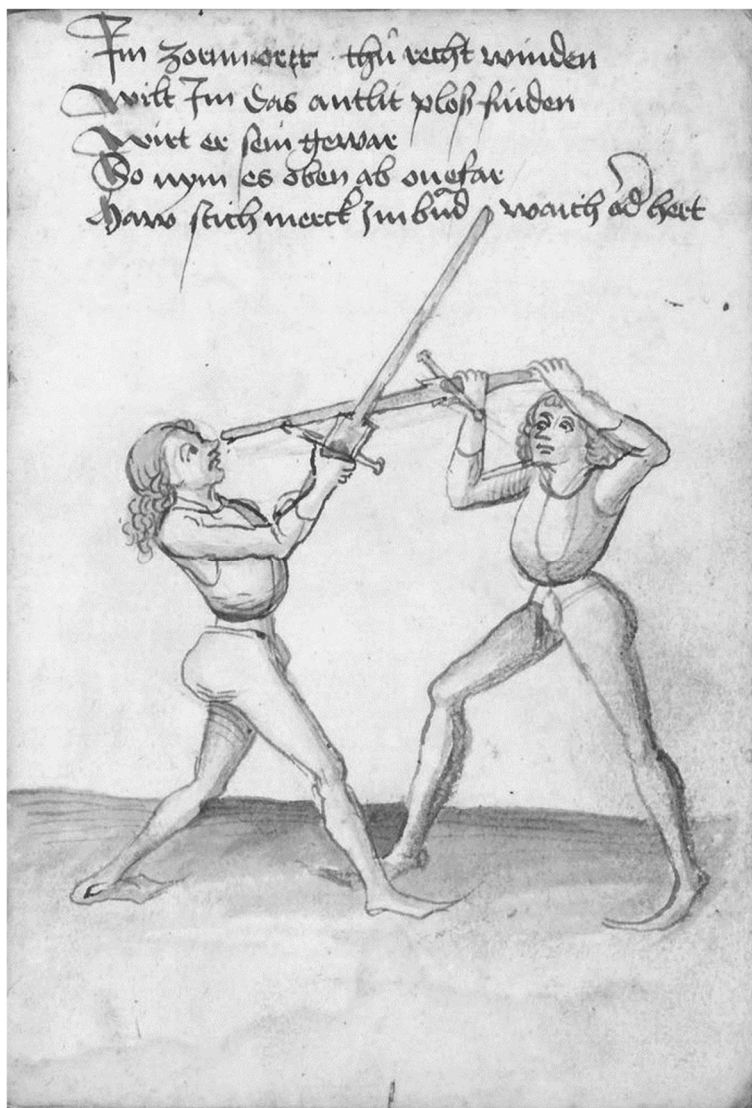 Im zornnortt thů recht winden
wilt Im das antlit plosß finden
Wirt er sein gewar
So nym es oben ab onefar
Haw stich merck Im bund waich od hert